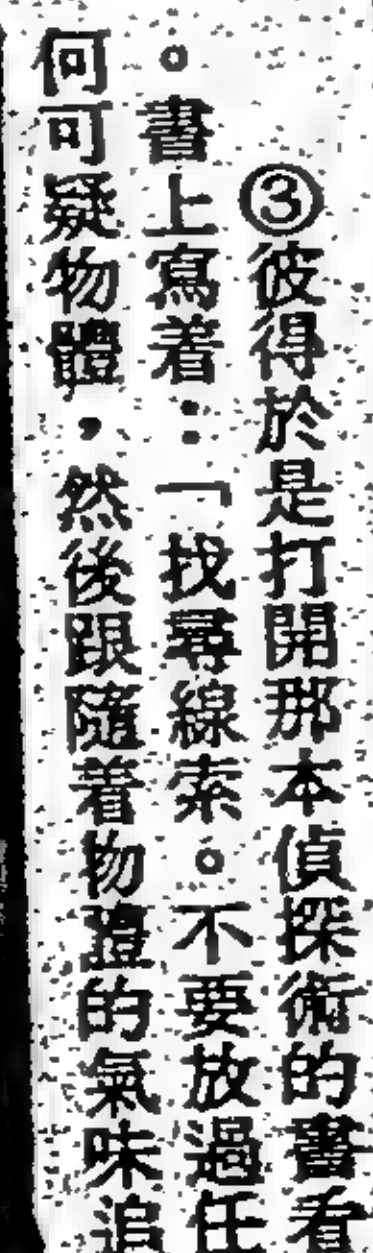 ③彼得於是打開那本偵探術的書看
。書上寫着：「找尋線索。不要放過任
何可疑物體，然後跟隨着物體的氣味追